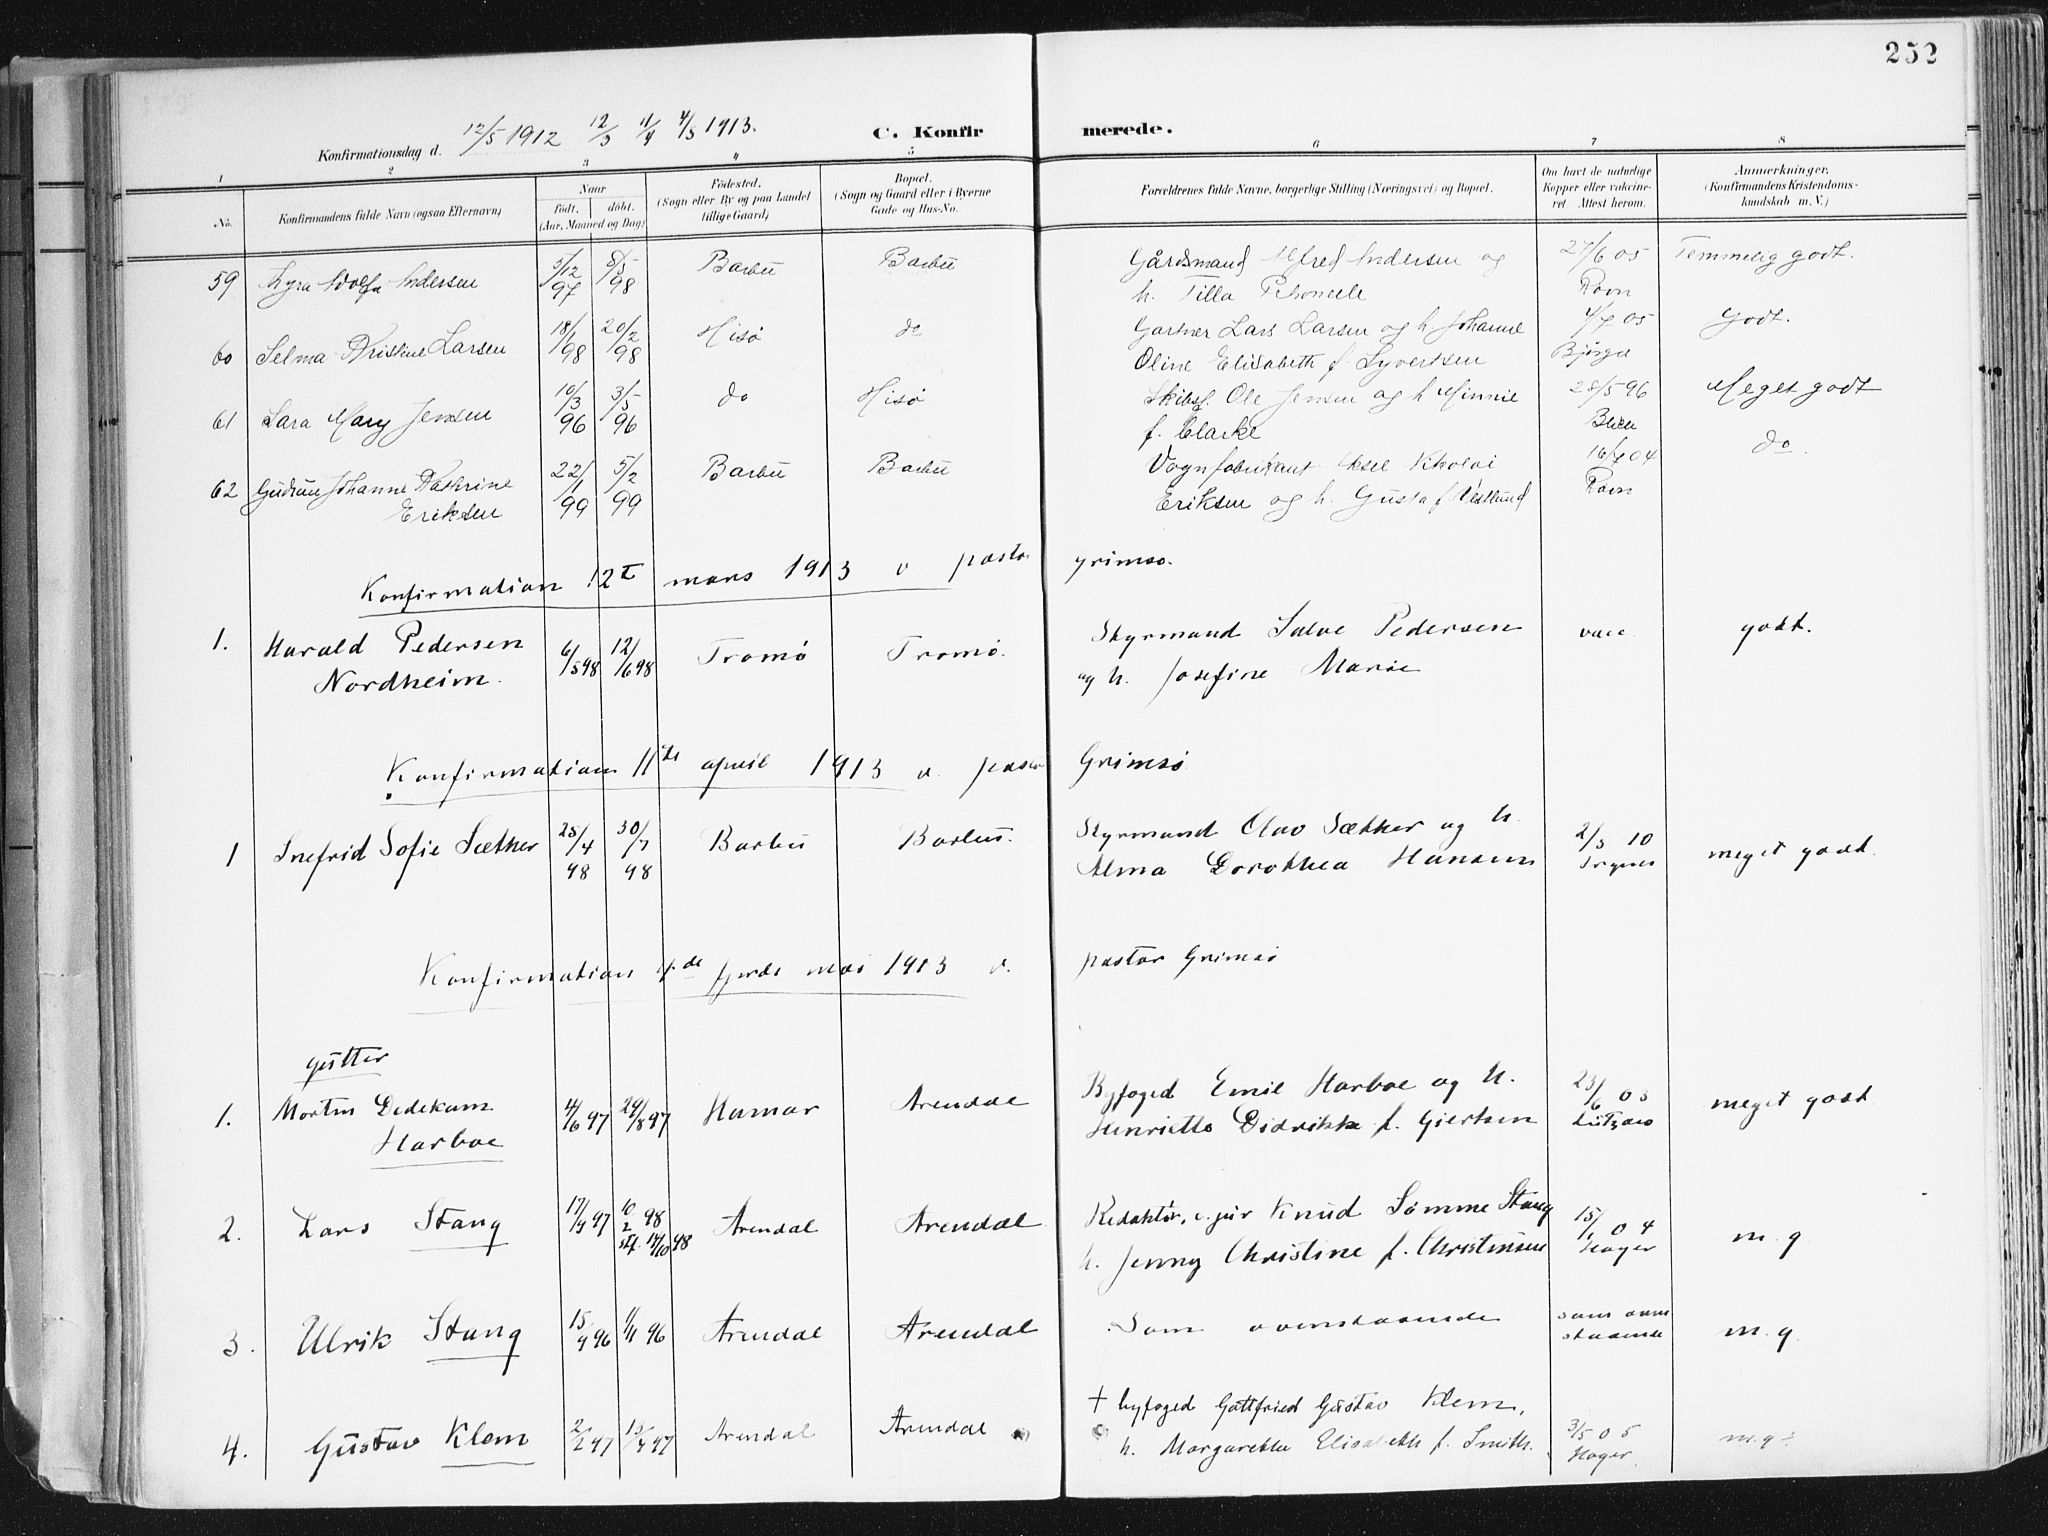 252
Konfirmationsdag d. 12/5 1912 12/3 11/4 4/5 1913. C. Konfirmerede.
1 2 3 4 5 6 7 8
No. Konfirmandens fulde Navn (ogsaa Efternavn) Naar födt. döbt. (Aar, Maaned og Dag) Födested. (Sogn eller By og paa Landet tillige Gaard) Bopæl. (Sogn og Gaard eller i Byerne Gade og Hus-No. Forældrenes fulde Navne, borgerlige Stilling (Næringsvei) og Bopæl. Om havt de naturlige Kopper eller vakcineret Attest herom. Anmærkninger. (Konfirmandens Kristendomskundskab m. V.)
59 Andersen 5/12 97 8/5 98 Barbu Barbu Gårdsmand Alfred Andersen og 27/6 05 Temmelig godt.
h. Tilla Petronelle Ravn
60 Selma Kristine Larsen 18/1 98 20/2 98 Hisø do Gartner Lars Larsen og h Johanne 4/7 05 Godt.
Oline Elisabeth f. Syvertsen
61 Sara Mary Jensen 10/3 96 3/5 96 do Hisø Skibsf. Ole Jensen og h Minnie 28/5 96 Meget godt
f. Clarke
62 Gudrun Johanne Kathrine 22/1 99 5/2 99 Barbu Barbu Vognfabrikant Aksel Nikolai 16/7 04 do.
Eriksen Eriksen og h. Gusta f. Ravn
Konfirmation 12te mars 1913 v pastor Grimsø.
1. Harald Pedersen 6/5 98 12/6 98 Tromø Tromø. Styrmand Salve Pedersen vacc. godt.
Nordheim. og h. Josefine Marie
Konfirmation 11te april 1913 v. pastor Grimsø
1 Snefrid Sofie Sæther 25/4 98 30/7 98 Barbu Barbu. Styrmand Olav Sæther og h. 2/3 10 meget godt.
Alma Dorothea Hansen
Konfirmation 4de fjerde mai 1913 v. pastor Grimsø
gutter
1. Morten Dedekam 4/6 97 29/8 97 Hamar Arendal Byfoged Emil Harboe og h. 23/6 03 meget godt
Harboe Henriette Didrikke f. Giertsen
2. Lars Stang 17/9 97 10/2 98 Arendal Arendal Redaktør, c. jur Knud Sømme Stang 15/1 04 m. g
stf. 17/10 98 h. Jenny Christine f. Christensen Hager
3. Ulrik Stang 15/9 96 1/11 96 Arendal Arendal Som ovenstaaende som ovenstaaende m. g.
4. Gustav Klem 2/2 97 Arendal Arendal + byfoged Gottfried Gustav Klem, 3/5 05 m.g.
h. Margarethe Elisabeth f. Smith. Hager.